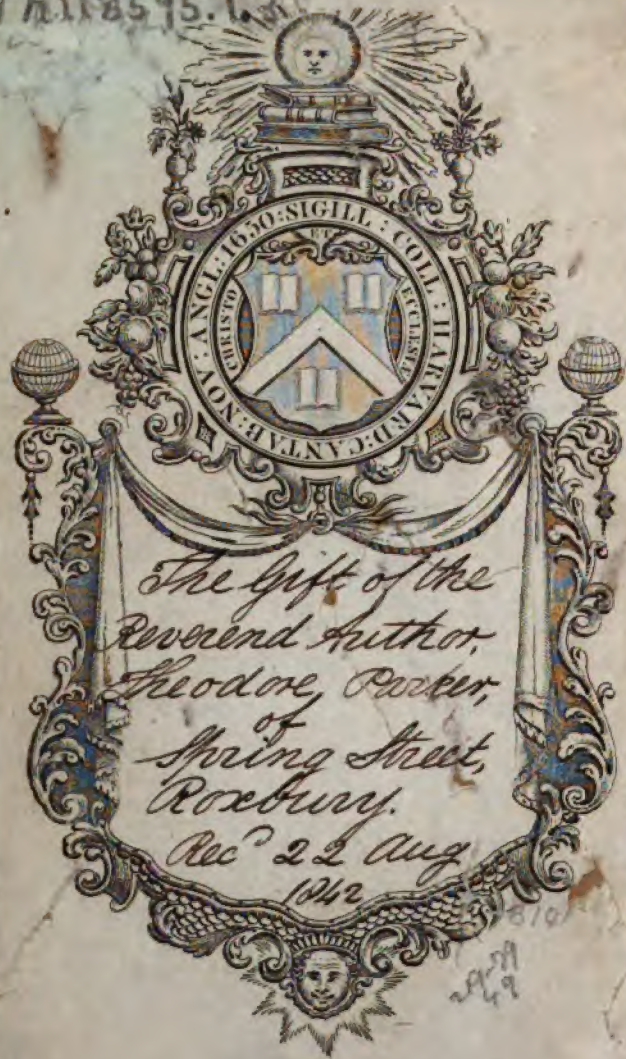 SIGILL : COLL : HARVARD : CANTAB : NOV : ANGL : 1650 :
CHRISTO
ET
ECCLESIÆ
The Gift of the
Reverend Author,
Theodore Parker,
of
Spring Street,
Roxbury.
Rec^d 22 Aug
1842